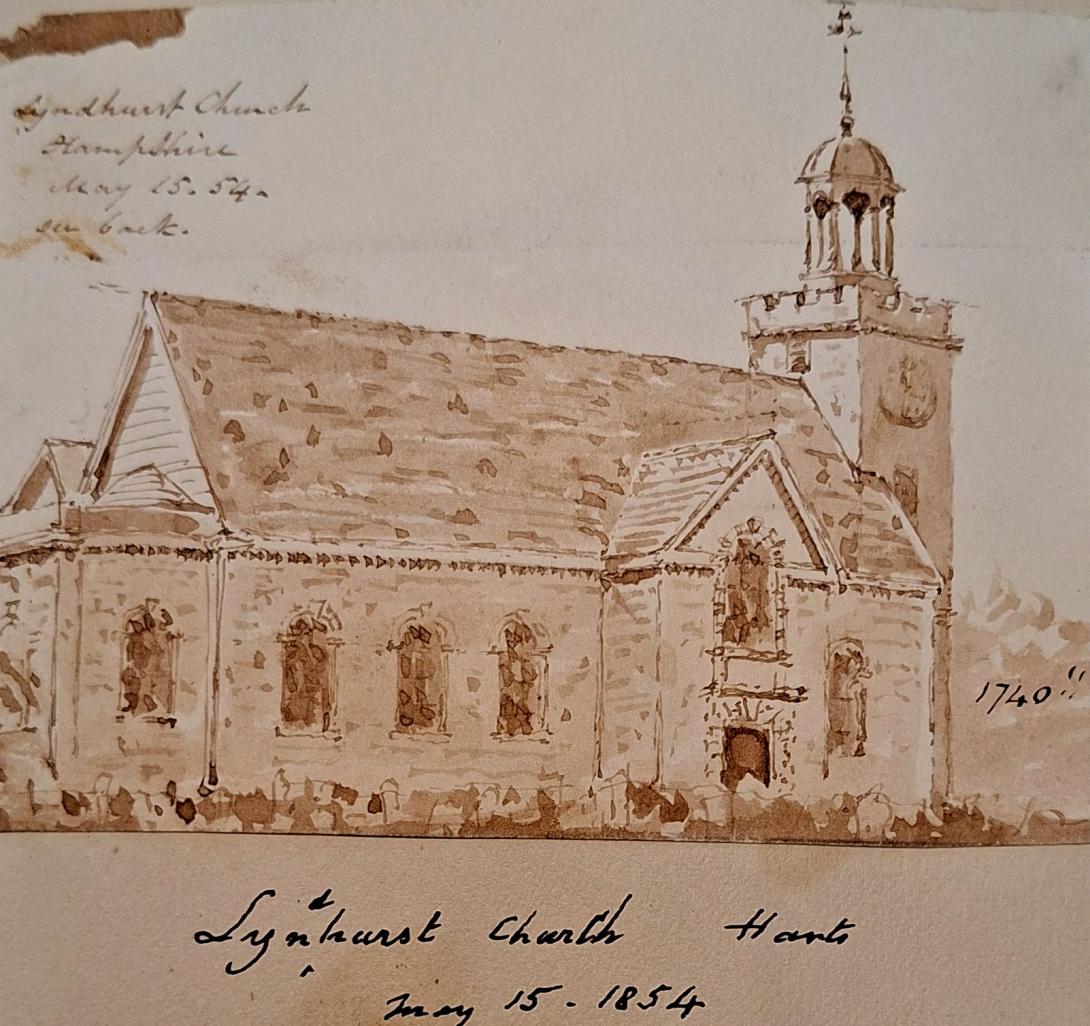 Lyndhurst Church
Hampshire
May 15. 54.
see back.
1740"
Lyndhurst Church Hants
May 15 - 1854